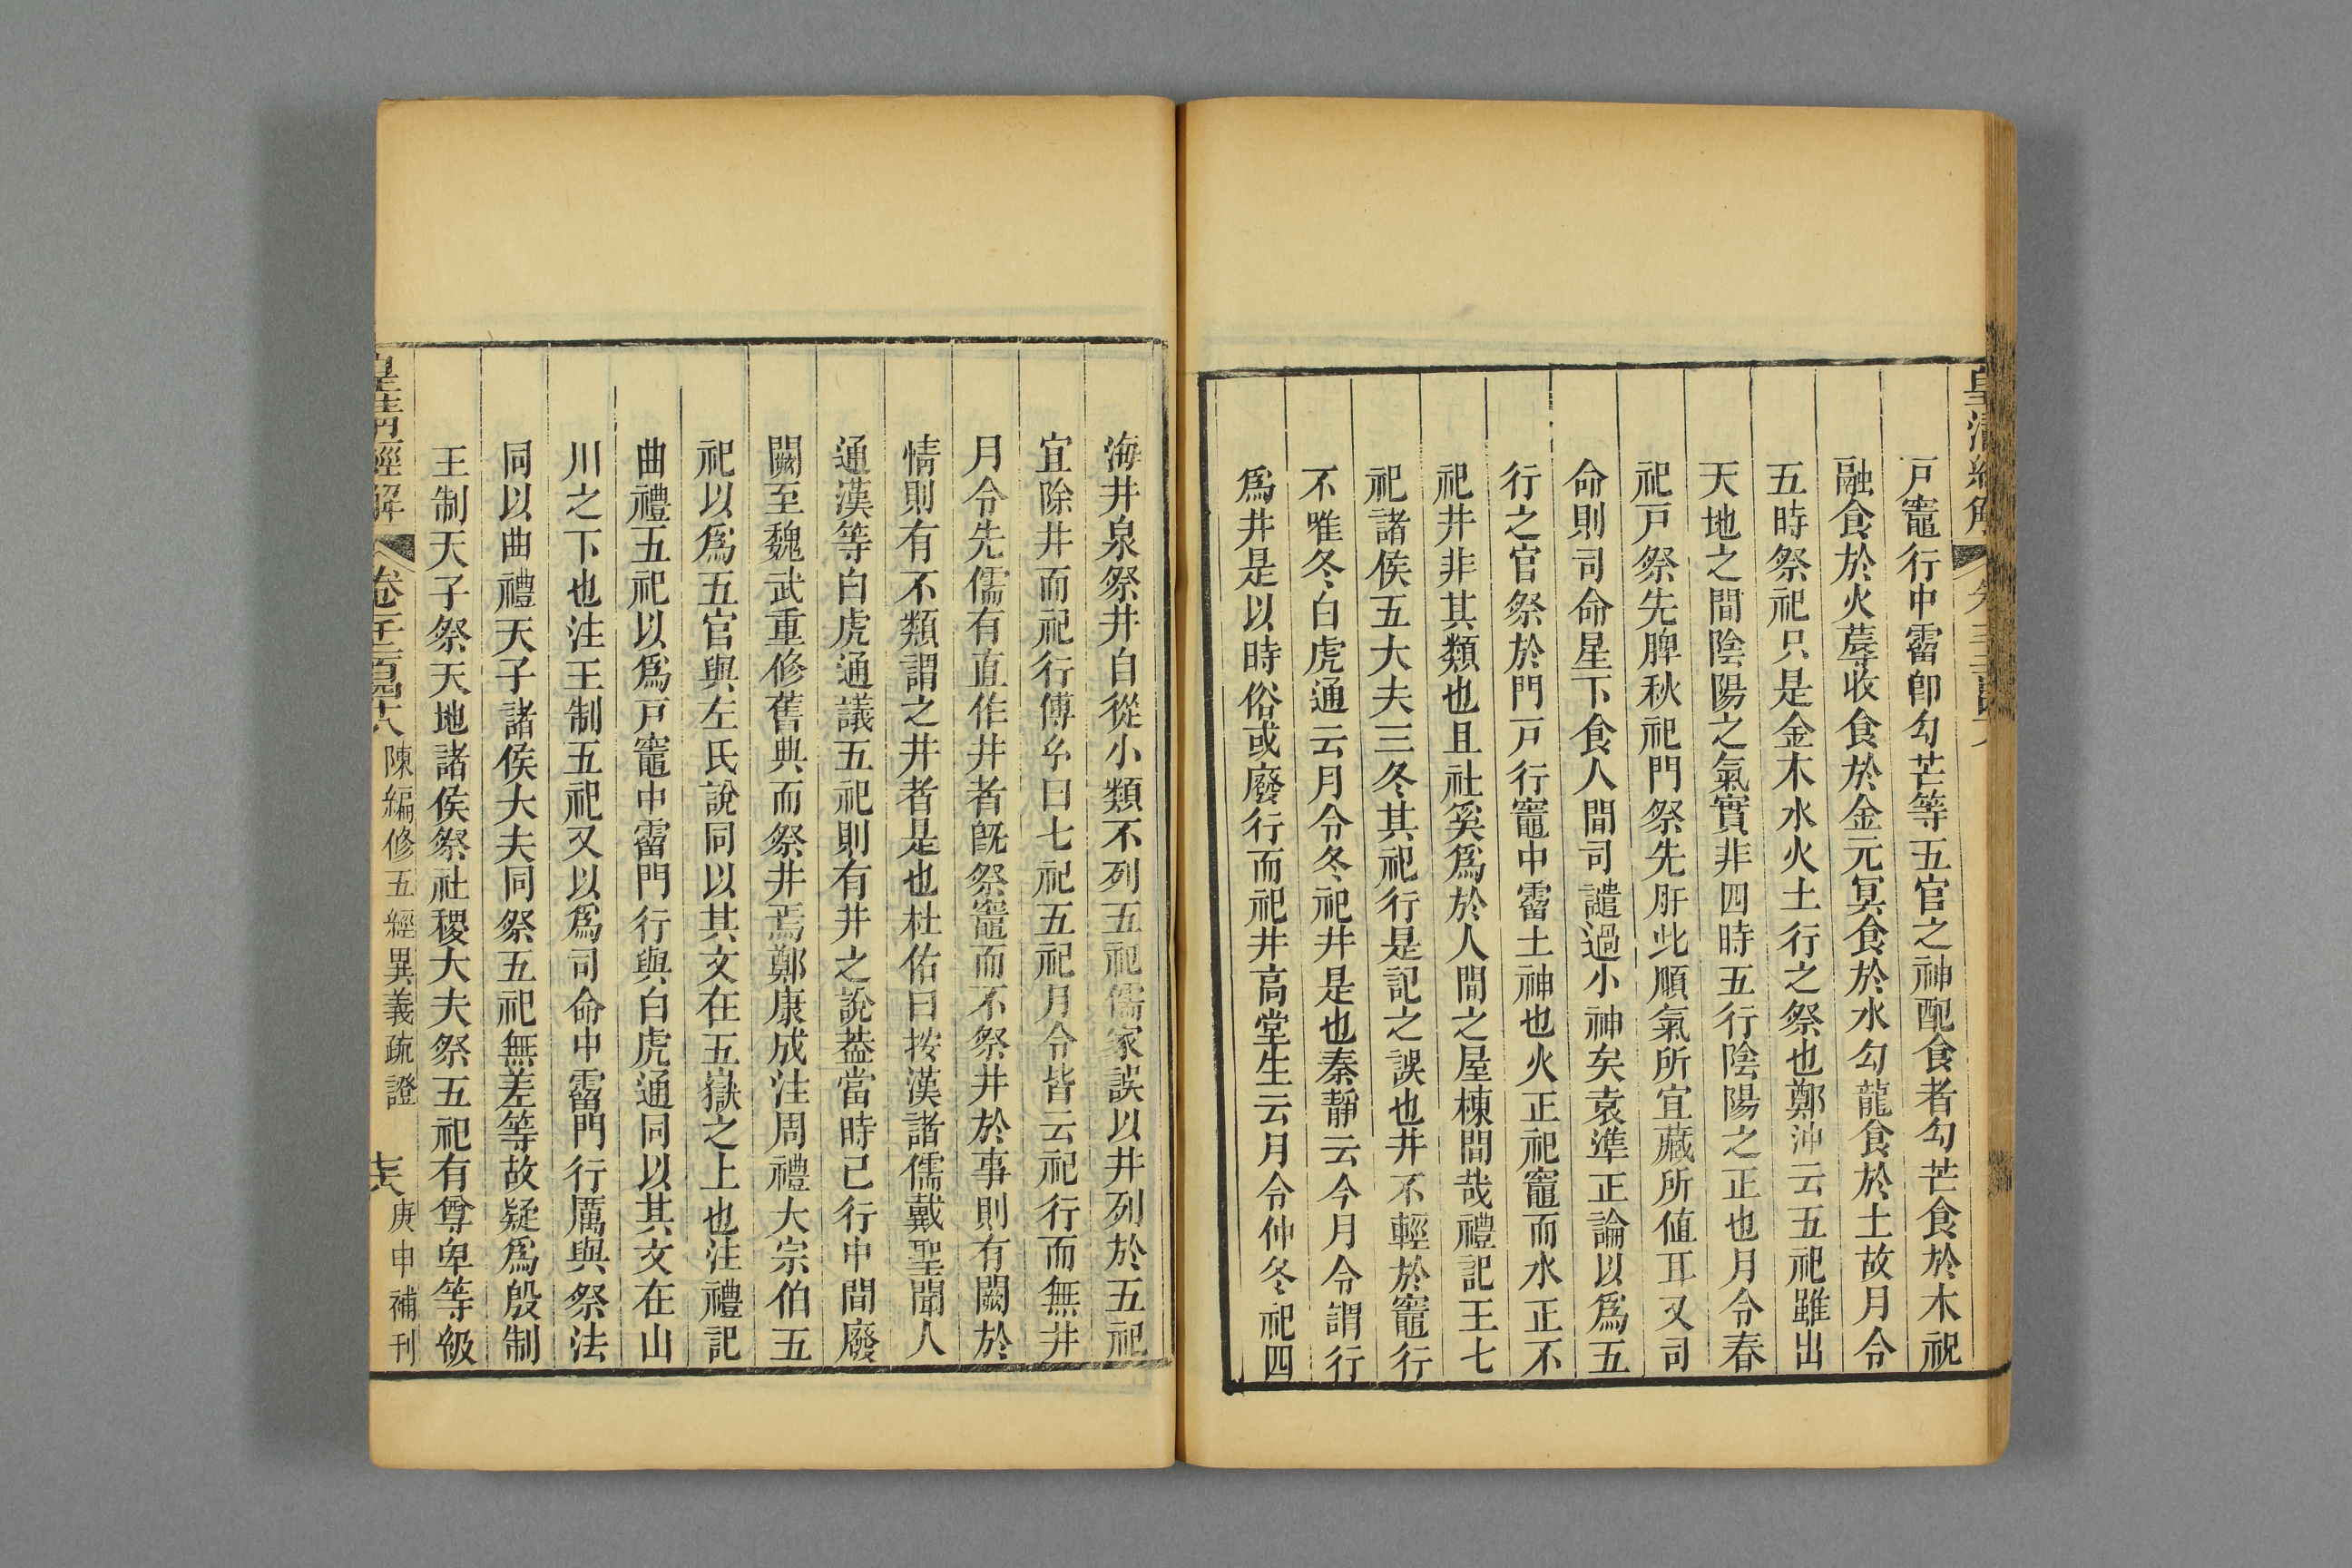 皇清經解
戸竈行中霤卽勾芒等五官之神配食者勾芒食於木祝
融食於火蓐收食於金元冥食於水勾龍食於土故月令
五時祭祀只是金木水火土行之祭也鄭沖云五祀雖出
天地之間陰陽之氣實非四時五行陰陽之正也月令春
祀戸祭先脾秋祀門祭先肝此順氣所宜藏所値耳又司
命則司命星下食人間司譴過小神矣袁準正論以爲五
行之官祭於門戸行竈中霤土神也火正祀竈而水正不
祀井非其類也且社奚爲於人間之屋棟間哉禮記王七
祀諸侯五大夫三冬其祀行是記之誤也井不輕於竈行
不唯冬白虎通云月令冬祀井是也秦靜云今月令謂行
爲井是以時俗或廢行而祀井高堂生云月令仲冬祀四
海井泉祭井自從小類不列五祀儒家誤以井列於五祀
宜除井而祀行傅玄曰七祀五祀月令皆云祀行而無井
月令先儒有直作井者旣祭竈而不祭井於事則有闕於
情則有不類謂之井者是也杜佑曰按漢諸儒戴聖聞人
通漢等白虎通議五祀則有井之說蓋當時已行中間廢
闕至魏武重修舊典而祭井焉鄭康成注周禮大宗伯五
祀以爲五官與左氏說同以其文在五嶽之上也注禮記
曲禮五祀以爲戸竈中霤門行與白虎通同以其文在山
川之下也注王制五祀又以爲司命中霤門行厲與祭法
同以曲禮天子諸侯大夫同祭五祀無差等故疑爲殷制
王制天子祭天地諸侯祭社稷大夫祭五祀有尊卑等級
皇清經解 卷千二百四十八 陳編修五經異義疏證 庚申補刊